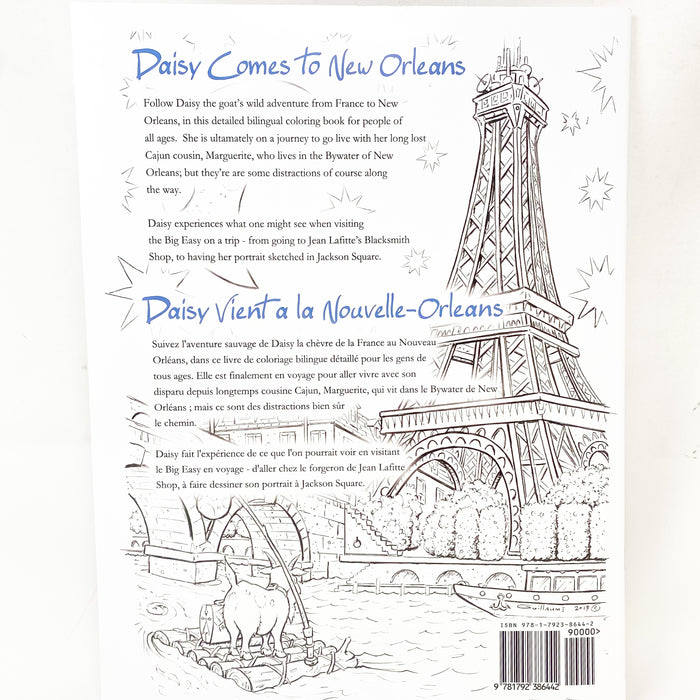 Daisy Comes to New Orleans
Follow Daisy the goat's wild adventure from France to New
Orleans, in this detailed bilingual coloring book for people of
all ages. She is ultamately on a journey to go live with her long lost
Cajun cousin, Marguerite, who lives in the Bywater of New
Orleans; but they're are some distractions of course along
the way.
Daisy experiences what one might see when visiting
the Big Easy on a trip - from going to Jean Lafitte's Blacksmith
Shop, to having her portrait sketched in Jackson Square.
Daisy Vient a la Nouvelle-Orleans
Suivez l'aventure sauvage de Daisy la chèvre de la France au Nouveau
Orléans, dans ce livre de coloriage bilingue détaillé pour les gens de
tous ages. Elle est finalement en voyage pour aller vivre avec son
disparu depuis longtemps cousine Cajun, Marguerite, qui vit dans le Bywater de New
Orléans ; mais ce sont des distractions bien sûr
le chemin.
Daisy fait l'expérience de ce que l'on pourrait voir en visitant
le Big Easy en voyage - d'aller chez le forgeron de Jean Lafitte
Shop, à faire dessiner son portrait à Jackson Square.
Guillaume 2019 ©
ISBN 978-1-7923-8644-2
90000>
9 781792 386442